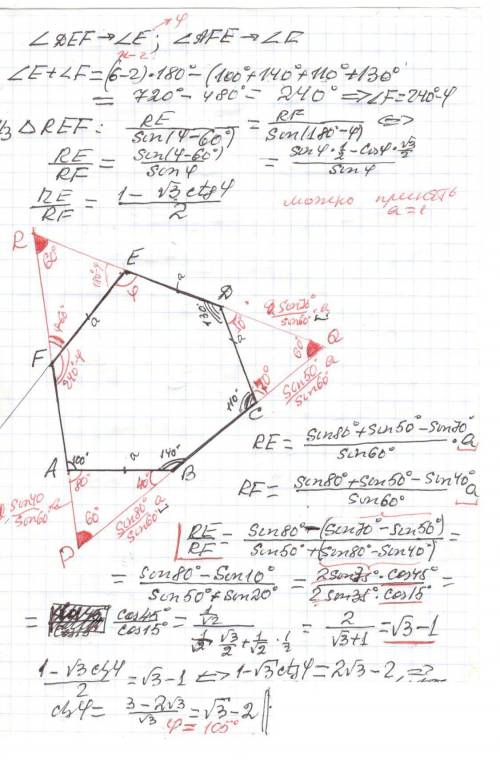 φ
∠DEF → ∠E ; ∠AFE → ∠F
n=2
∠E+∠F = (6-2)·180° - (100°+140°+110°+130°)
= 720° - 480° = 240° ⇒ ∠F = 240° - φ
Из △REF: RE/sin(φ-60°) = RF/sin(180°-φ) ⇔
RE/RF = sin(φ-60°)/sinφ = (sinφ·1/2 - cosφ·√3/2)/sinφ
RE/RF = (1-√3 ctgφ)/2
можно принять
a=1
R
60°
E
180°-φ
φ
a
D
130°
50°
a sin70°/sin60°
Q
60°
a
φ-60°
F
240°-φ
a
70°
110°
C
sin50°/sin60° a
A
100°
a
140°
B
80°
40°
sin40°/sin60° a
60°
P
sin80°/sin60° a
RE = (sin80°+sin50°-sin70°)/sin60° · a
RF = (sin80°+sin50°-sin40°)/sin60° a
RE/RF = (sin80°-(sin70°-sin50°))/(sin50°+(sin80°-sin40°)) =
= (sin80°-sin10°)/(sin50°+sin20°) = (2sin35°·cos45°)/(2sin35°·cos15°) =
= cos45°/cos15° = (1/√2)/(1/√2·√3/2+1/√2·1/2) = 2/(√3+1) = √3-1
(1-√3 ctgφ)/2 = √3-1 ⇔ 1-√3 ctgφ = 2√3-2, ⇒
ctgφ = (3-2√3)/√3 = √3-2
φ = 105°